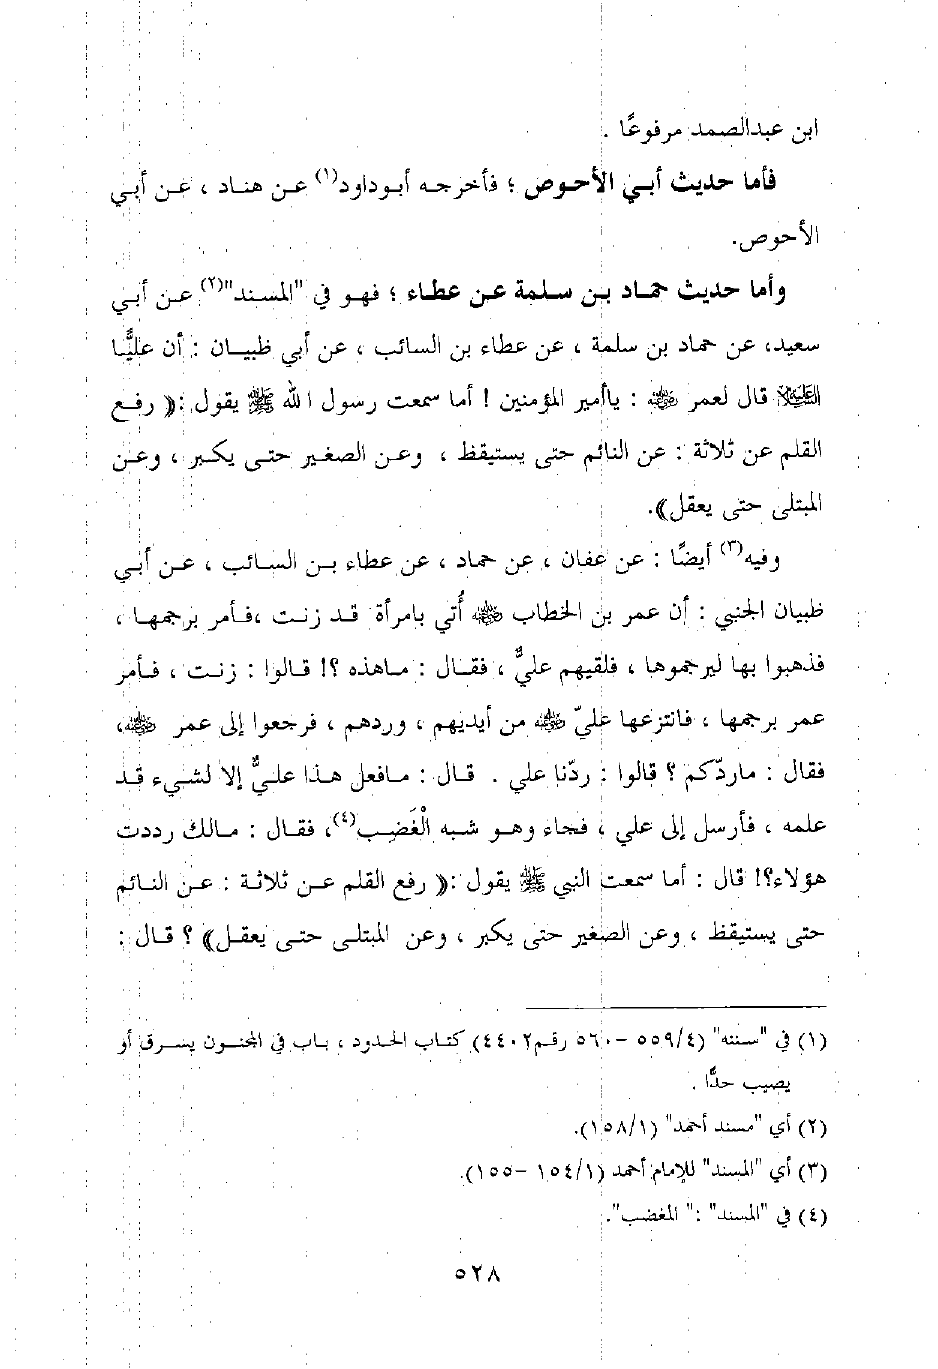 ابن عبدالصمد مرفوعًا .
فأما حديث أبي الأحوص ؛ فأخرجه أبوداود(١) عن هناد ، عن أبي
الأحوص.
وأما حديث حماد بن سلمة عن عطاء ؛ فهو في "المسند"(٢) عن أبي
سعيد، عن حماد بن سلمة ، عن عطاء بن السائب ، عن أبي ظبيان : أن عليًّا
عليه السلام قال لعمر رضي الله عنه : ياأمير المؤمنين ! أما سمعت رسول الله ﷺ يقول :(( رفع
القلم عن ثلاثة : عن النائم حتى يستيقظ ، وعن الصغير حتى يكبر ، وعن
المبتلى حتى يعقل)).
وفيه(٣) أيضًا : عن عفان ، عن حماد ، عن عطاء بن السائب ، عن أبي
ظبيان الجنبي : أن عمر بن الخطاب رضي الله عنه أُتي بامرأة قد زنت ،فأمر برجمها ،
فذهبوا بها ليرجموها ، فلقيهم عليٌّ ، فقال : ماهذه ؟! قالوا : زنت ، فأمر
عمر برجمها ، فانتزعها عليّ رضي الله عنه من أيديهم ، وردهم ، فرجعوا إلى عمر رضي الله عنه،
فقال : ماردّكم ؟ قالوا : ردّنا علي . قال : مافعل هذا عليٌّ إلا لشيء قد
علمه ، فأرسل إلى علي ، فجاء وهو شبه الْغَضِب(٤)، فقال : مالك رددت
هؤلاء؟! قال : أما سمعت النبي ﷺ يقول :(( رفع القلم عن ثلاثة : عن النائم
حتى يستيقظ ، وعن الصغير حتى يكبر ، وعن المبتلى حتى يعقل)) ؟ قال :
(١) في "سننه" (٤/٥٥٩ -٥٦٠ رقم٤٤٠٢) كتاب الحدود ، باب في المجنون يسرق أو
يصيب حدًّا .
(٢) أي "مسند أحمد" (١/١٥٨).
(٣) أي "المسند" للإمام أحمد (١/١٥٤ -١٥٥).
(٤) في "المسند" :" المغضب".
٥٢٨